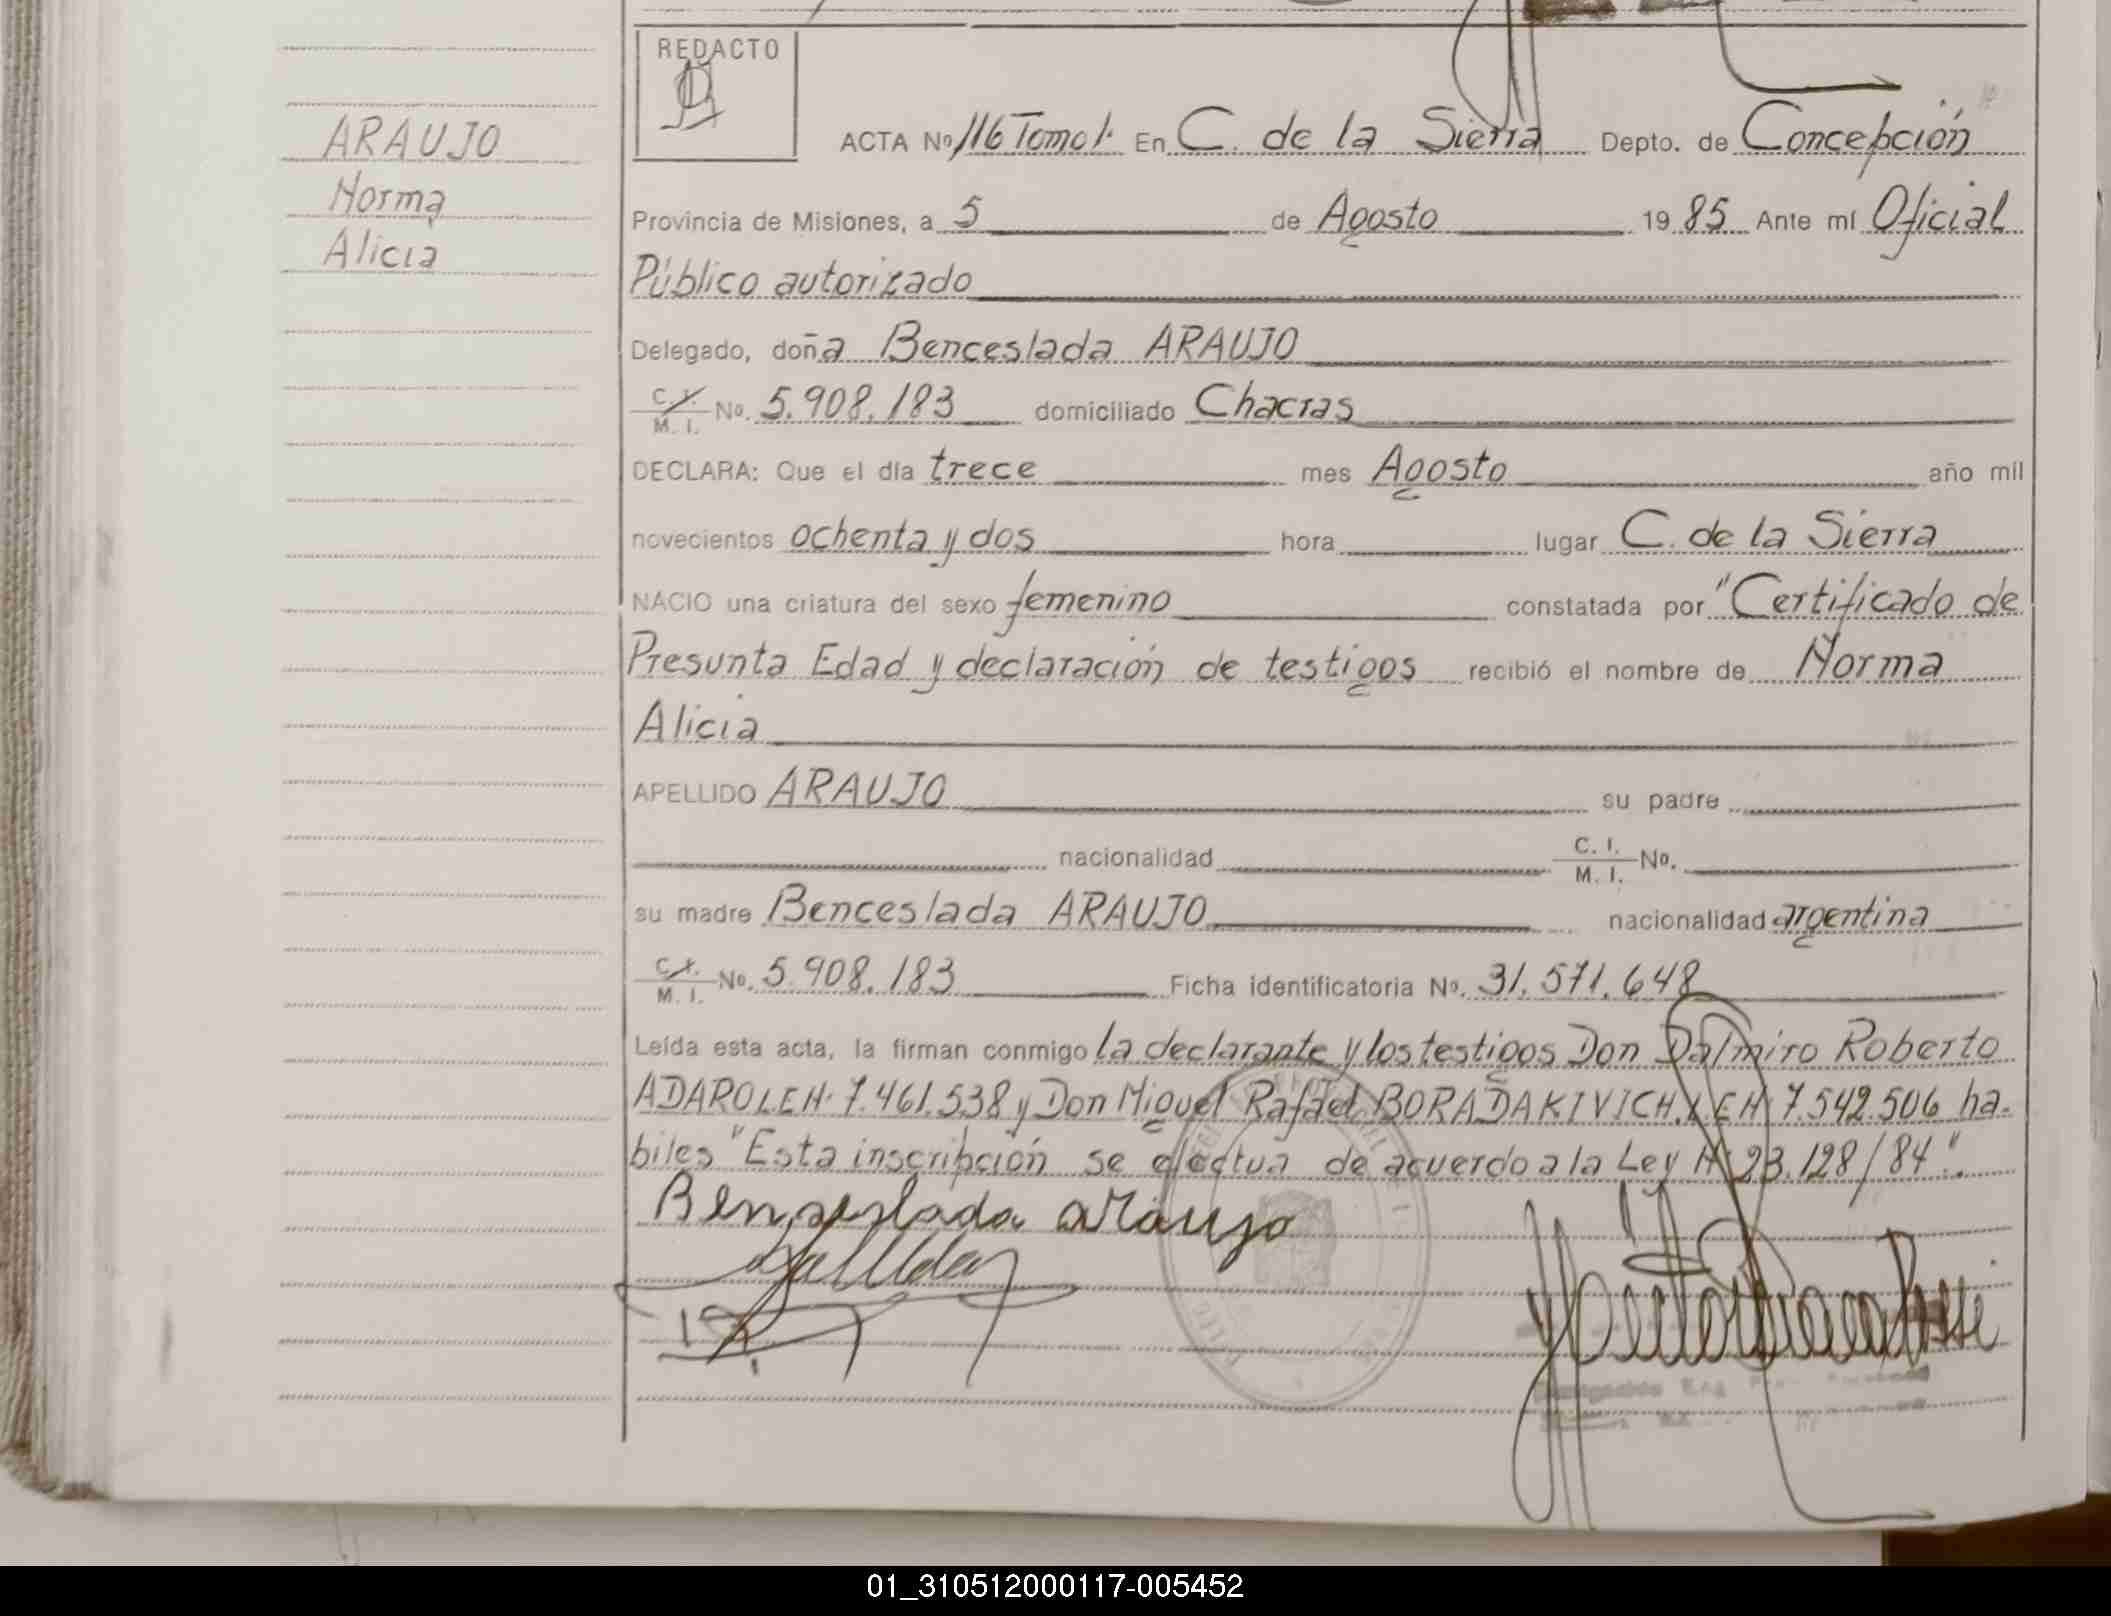 REDACTO
ARAUJO
Norma
Alicia
ACTA Nº 116 Tomo 1. En C. de la Sierra Depto. de Concepción
Provincia de Misiones, a 5 de Agosto 19 85 Ante mí Oficial
Público autorizado
Delegado, doña Benceslada ARAUJO
C.I. M. I. No. 5.908.183 domiciliado Chacras
DECLARA: Que el día trece mes Agosto año mil
novecientos ochenta y dos hora lugar C. de la Sierra
NACIO una criatura del sexo femenino constatada por "Certificado de
Presunta Edad y declaración de testigos recibió el nombre de Norma
Alicia
APELLIDO ARAUJO su padre
nacionalidad C. I. M. I. No.
su madre Benceslada ARAUJO nacionalidad argentina
C.I. M. I. No. 5.908.183 Ficha identificatoria No. 31.571.648
Leída esta acta, la firman conmigo la declarante y los testigos Don Dalmiro Roberto
ADARO L E N. 7.461.538 y Don Miguel Rafael BORADAKIVICH. L E N 7.542.506 ha-
biles "Esta inscripción se efectua de acuerdo a la Ley N 23.128/84".
Benseslada araujo
01_310512000117-005452